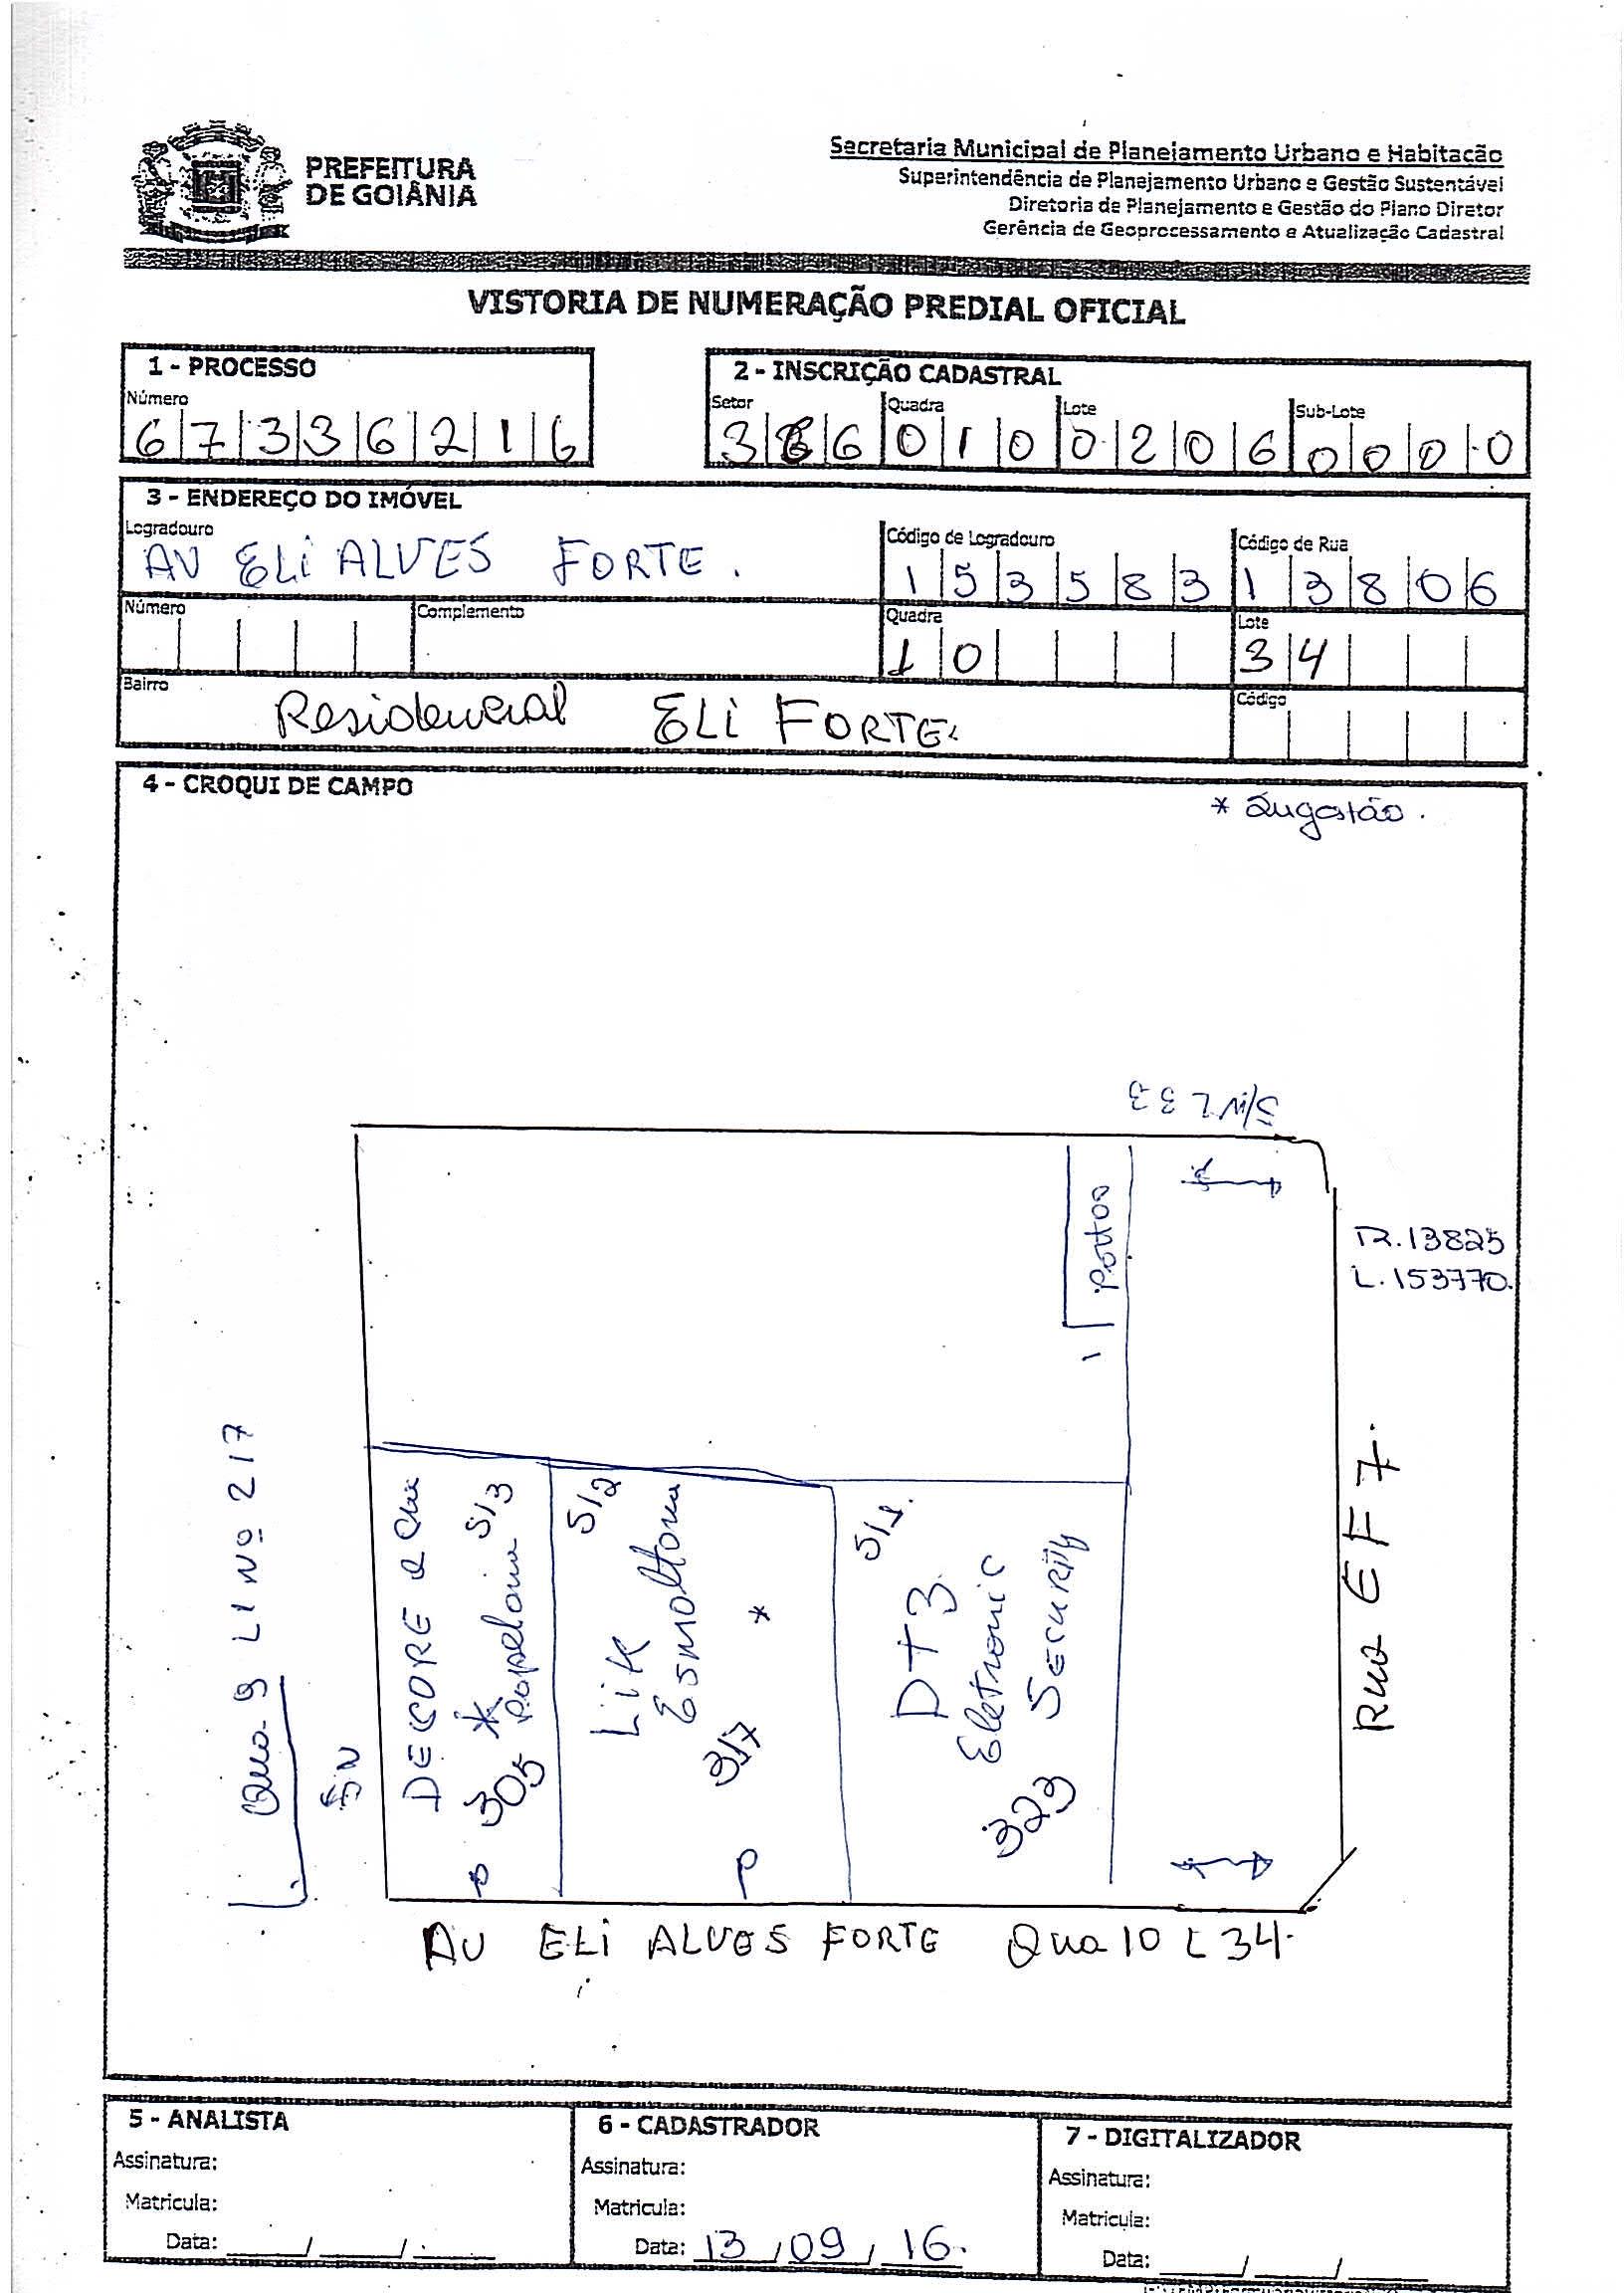 PREFEITURA
DE GOIÂNIA
Secretaria Municipal de Planejamento Urbano e Habitação
Superintendência de Planejamento Urbano e Gestão Sustentável
Diretoria de Planejamento e Gestão do Plano Diretor
Gerência de Geoprocessamento e Atualização Cadastral
VISTORIA DE NUMERAÇÃO PREDIAL OFICIAL
1 - PROCESSO
Número
67336216
2 - INSCRIÇÃO CADASTRAL
Setor Quadra Lote Sub-Lote
386 010 0206 0000
3 - ENDEREÇO DO IMÓVEL
Logradouro
AV ELi ALVES FORTE.
Código de Logradouro
153583
Código de Rua
13806
Número
Complemento
Quadra
10
Lote
34
Bairro
Residencial ELi FORTE.
Código
4 - CROQUI DE CAMPO
* Sugestão.
S/N L 33
Portão
R.13825
L.153770.
Rua EF7.
Qua 9 L1 Nº 217
SN
DECORE e Cia
* Papelaria S/3
305
P
S/2
LiK
Esmalteria
*
317
P
S/1.
DT3
Eletronic
Security
323
AV ELi ALVES FORTE Qua 10 L 34.
5 - ANALISTA
Assinatura:
Matricula:
Data: ____/____/____
6 - CADASTRADOR
Assinatura:
Matricula:
Data: 13/09/16.
7 - DIGITALIZADOR
Assinatura:
Matricula:
Data: ____/____/____